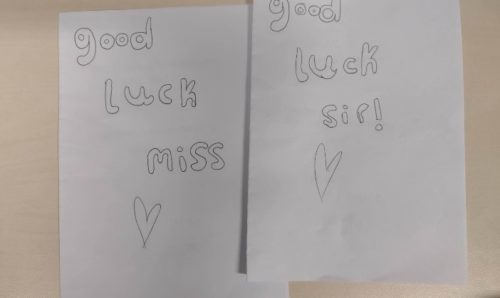 good
luck
miss
good
luck
sir!